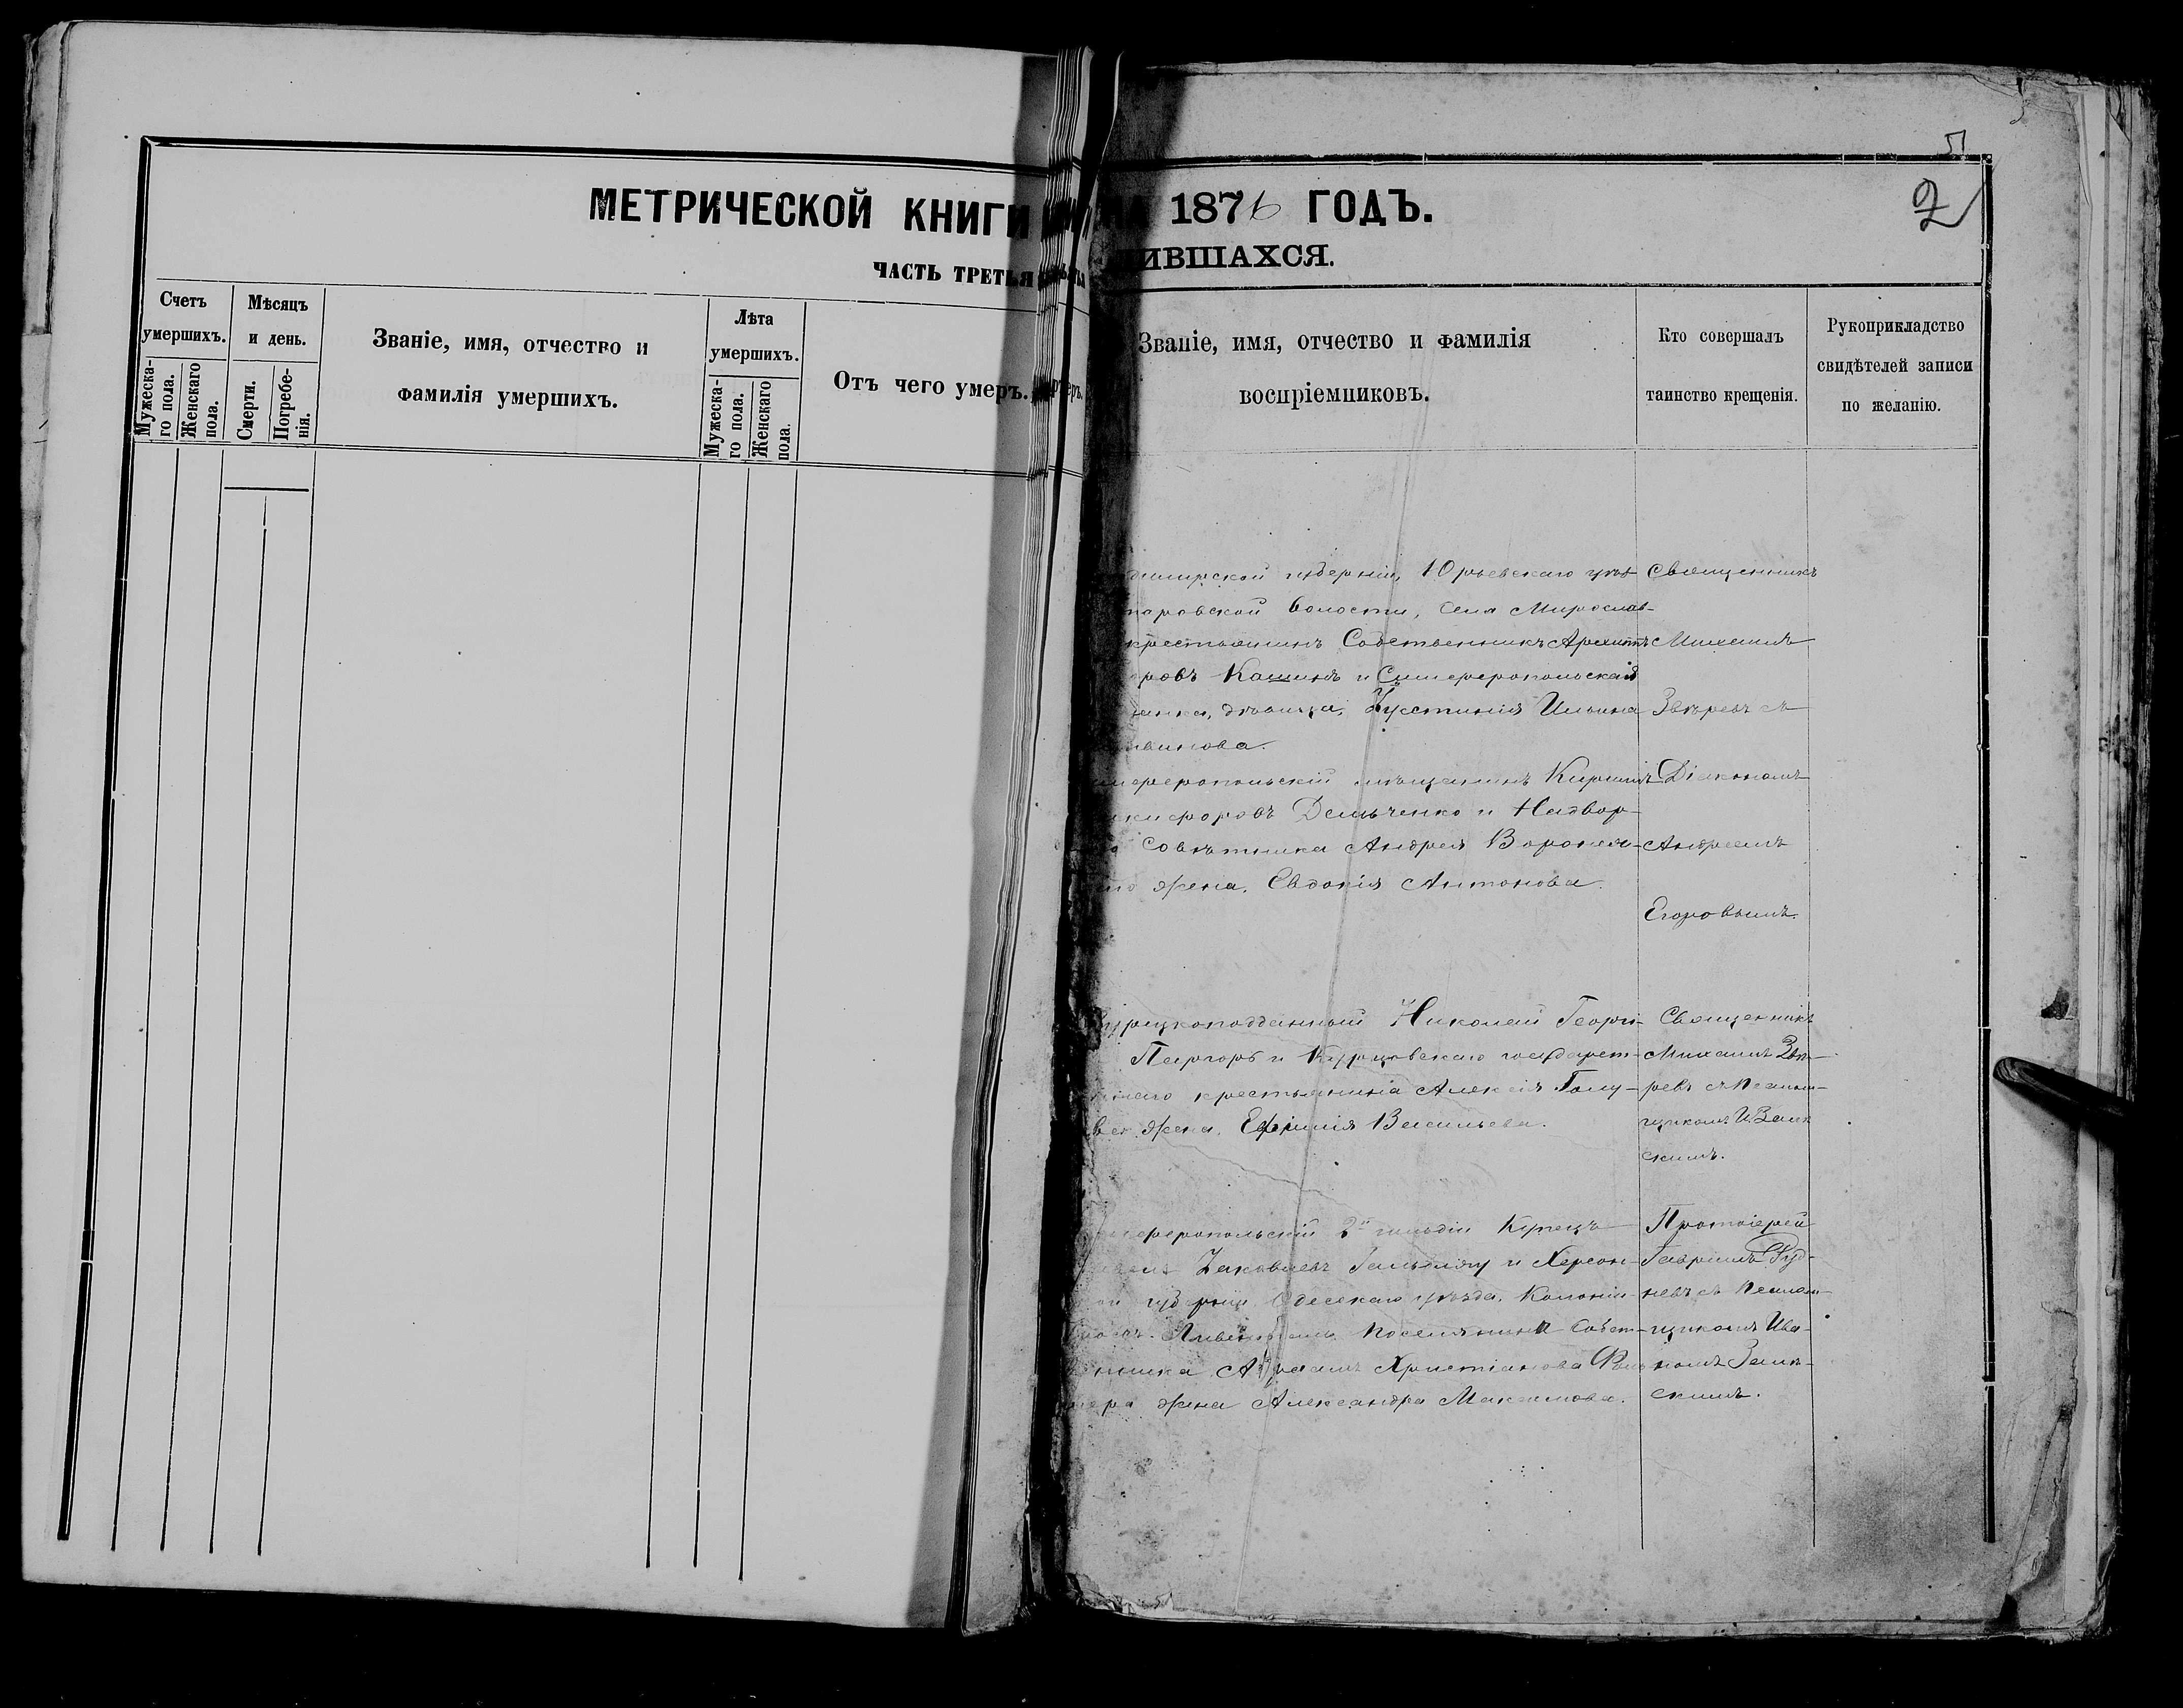 МЕТРИЧЕСКОЙ КНИГИ
ЧАСТЬ ТРЕТЬЯ
Счетъ умершихъ.
Мужеска-го пола.
Женскаго пола.
Мѣсяцъ и день.
Смерти.
Погребе-нія.
Званіе, имя, отчество и
фамилія умершихъ.
Лѣта умершихъ.
Мужеска-го пола.
Женскаго пола.
Отъ чего умеръ.
5
2
НА 1876 ГОДЪ.
ИВШАХСЯ.
Званіе, имя, отчество и фамилія
воспріемниковъ.
Кто совершалъ
таинство крещенія.
Рукоприкладство
свидѣтелей записи
по желанію.
димірской губерніи, Юрьевскаго уѣз-
паровской волости, села Мирослав-
крестьянинъ Собственникъ
ровъ Кашинъ и Симферопольская
щанка, дѣвица, Іустинія Ильина
винова.
Священникъ
Михаилъ
Звѣревъ съ
Діакономъ
Андреемъ
Егоровымъ.
мферопольскій мѣщанинъ Кириллъ
кифоровъ Демьченко и Надвор-
Совѣтника Андрея Вороняч-
жена, Евдокія Антонова.
Турецкоподданный Николай Георгі-
Пергоръ и Курцовскаго государст-
веннаго крестьянина Алексія Голу-
жена, Ефимія Васильева.
Священникъ
Михаилъ Звѣ-
ревъ съ Псалом-
щикомъ И. Зелин
скимъ.
мферопольскій 2й гильдіи Купецъ
Яковлевъ и Херсон-
губерніи Одесскаго уѣзда, Колоніи
поселянина Собст-
венника Христіанова
жена Александра Максимова.
Протоіерей
Гавріилъ Руд-
невъ съ Псалом-
щикомъ Ива-
номъ Зелин-
скимъ.